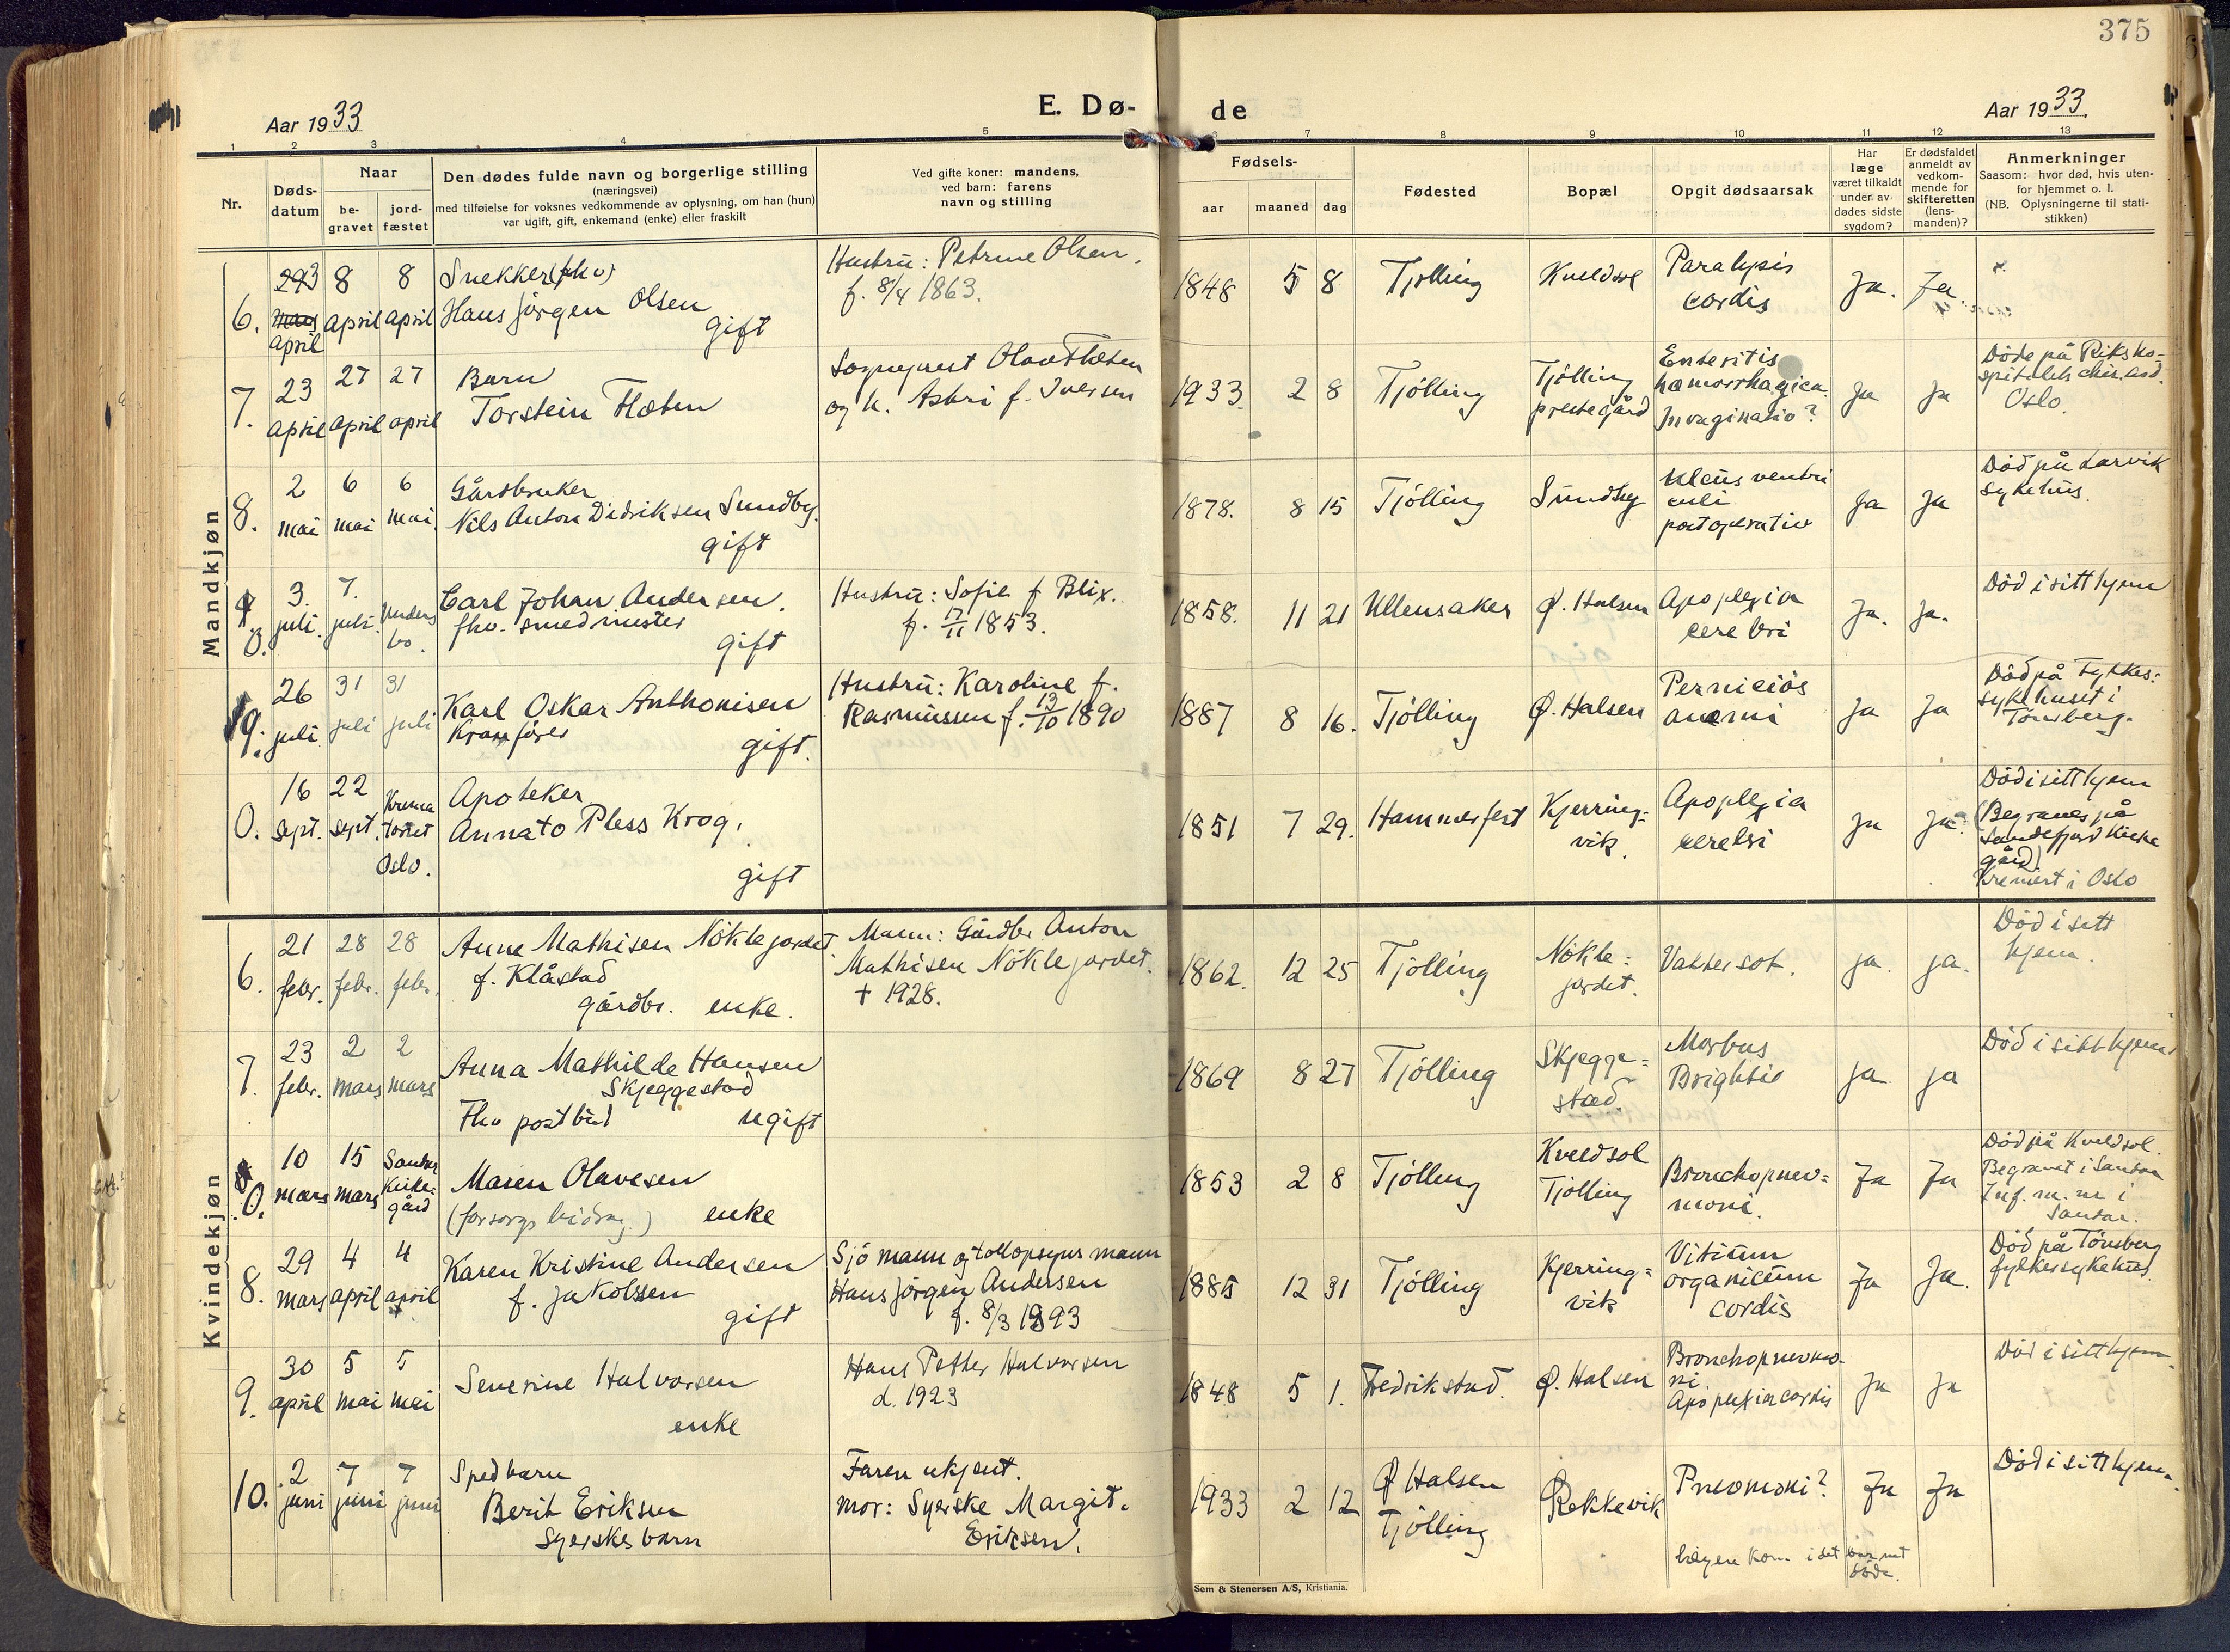 375
Aar 1933
E. Dø-
de
Aar 1933.
1 2 3 4 5 6 7 8 9 10 11 12 13
Nr.
Døds-
datum
Naar
be-
gravet
jord-
fæstet
Den dødes fulde navn og borgerlige stilling
(næringsvei)
med tilføielse for voksnes vedkommende av oplysning, om han (hun)
var ugift, gift, enkemand (enke) eller fraskilt
Ved gifte koner: mandens,
ved barn: farens
navn og stilling
Fødsels-
aar maaned dag
Fødested
Bopæl
Opgit dødsaarsak
Har
læge
været tilkaldt
under av-
dødes sidste
sygdom?
Er dødsfaldet
anmeldt av
vedkom-
mende for
skifteretten
(lens-
manden)?
Anmerkninger
Saasom: hvor død, hvis uten-
for hjemmet o. l.
(NB. Oplysningerne til stati-
stikken)
Mandkjøn
6.
3
mars
april
8
april
8
april
Snekker (fhv)
Hans Jörgen Olsen
gift
Hustru: Petrine Olsen.
f. 8/4 1863.
1848 5 8
Tjölling
Kveldsol
Paralysis
cordis
Ja. Ja.
7.
23
april
27
april
27
april
Barn
Torstein Flöten
Sogneprest Olav Flöten
og h. Astri f. Iversen
1933. 2 8
Tjölling
Tjölling
prestegård
Enteritis
hæmorrhagica.
Invaginatio?
ja ja
Döde på Riksho-
spitalets chir. avd.
Oslo.
8.
2
mai
6
mai
6
mai.
Gårdbruker
Nils Anton Didriksen Sundby.
gift
1878. 8 15
Tjölling
Sundby
Ulcus ventri
culi
postoperativ
Ja Ja
Död på Larvik
sykehus.
0.
3.
juli.
7.
juli.
Carl Johan Andersen.
fhv. smedmester
gift
Hustru: Sofie f Blix.
f. 17/11 1853.
1858. 11 21
Ullensaker
Ø. Halsen
Apoplexia
cerebri
Ja. Ja.
Död i sitt hjem
9.
26
juli.
31
juli
31
juli
Karl Oskar Anthonisen
gift.
Hustru: Karoline f.
Rasmussen f. 13/10 1890
1887 8 16.
Tjölling
Ø. Halsen
Perniciös
anæmi
Ja Ja
Död på Fylkes:
sykehuset i
Tönsberg.
0.
16
sept.
22
sept.
Krema
toriet
Oslo.
Apoteker
Annato Pless Krog.
gift
1851 7 29.
Hammerfest
Kjerring-
vik.
Apoplexia
cerebri
Ja Ja.
Död i sitt hjem
(Begraves på
Sandefjord kirke
gård)
Kremert i Oslo
Kvindekjøn
6.
21
febr.
28
febr.
28
febr.
Anne Mathisen Nöklegordet.
f. Klåstad
gårdbr. enke.
Mann: Gårdbr. Anton
Mathisen Nöklegordet.
† 1928.
1862. 12 25
Tjölling
Nökle-
jordet.
Vattersot.
ja. ja.
Död i sitt
hjem.
7.
23
febr.
2
mars
2
mars
Anna Mathilde Hansen
Skjeggestad
Fhv postbud ugift
1869 8 27
Tjölling
Skjegge-
stad.
Morbus
Brightii
ja ja
Död i sitt hjem
0.
10
mars
15
mars
Sandar
kirke-
gård
Maren Olavesen
(forsorgsbidrag.) enke
1853 2 8
Tjölling
Kveldsol
Tjölling
Bronchopnev-
moni.
Ja Ja
Död på Kveldsol.
Begravet i Sandar
Inf. m. m i
Sandar.
8.
29
mars
4
april
4
april
Karen Kristine Andersen
f. Jakobsen
gift
Sjömann og tollopsynsmann
Hans Jörgen Andersen
f. 8/3 1893
1885 12 31
Tjölling
Kjerring-
vik
Vitium
organicum
cordis
Ja Ja.
Död på Tönsberg
fylkessykehus.
9.
30
april
5
mai
5
mai
Severine Halvorsen
enke
Hans Petter Halvorsen
d. 1923
1848 5 1.
Fredrikstad.
Ø. Halsen
Bronchopnevmo-
ni
Apoplexia cordis
Ja Ja
Död i sitt hjem.
10.
2
juni
7
juni
7
juni
Spedbarn
Berit Eriksen
Syerskes barn
Faren ukjent.
Mor: Syerske Margit.
Eriksen.
1933 2 12
Ø Halsen
Tjölling
Rekkevik
Pnevmoni?
Ja Ja
Död i sitt hjem.
lægen kom i det barnet
döde.
Sem & Stenersen A/S, Kristiania.